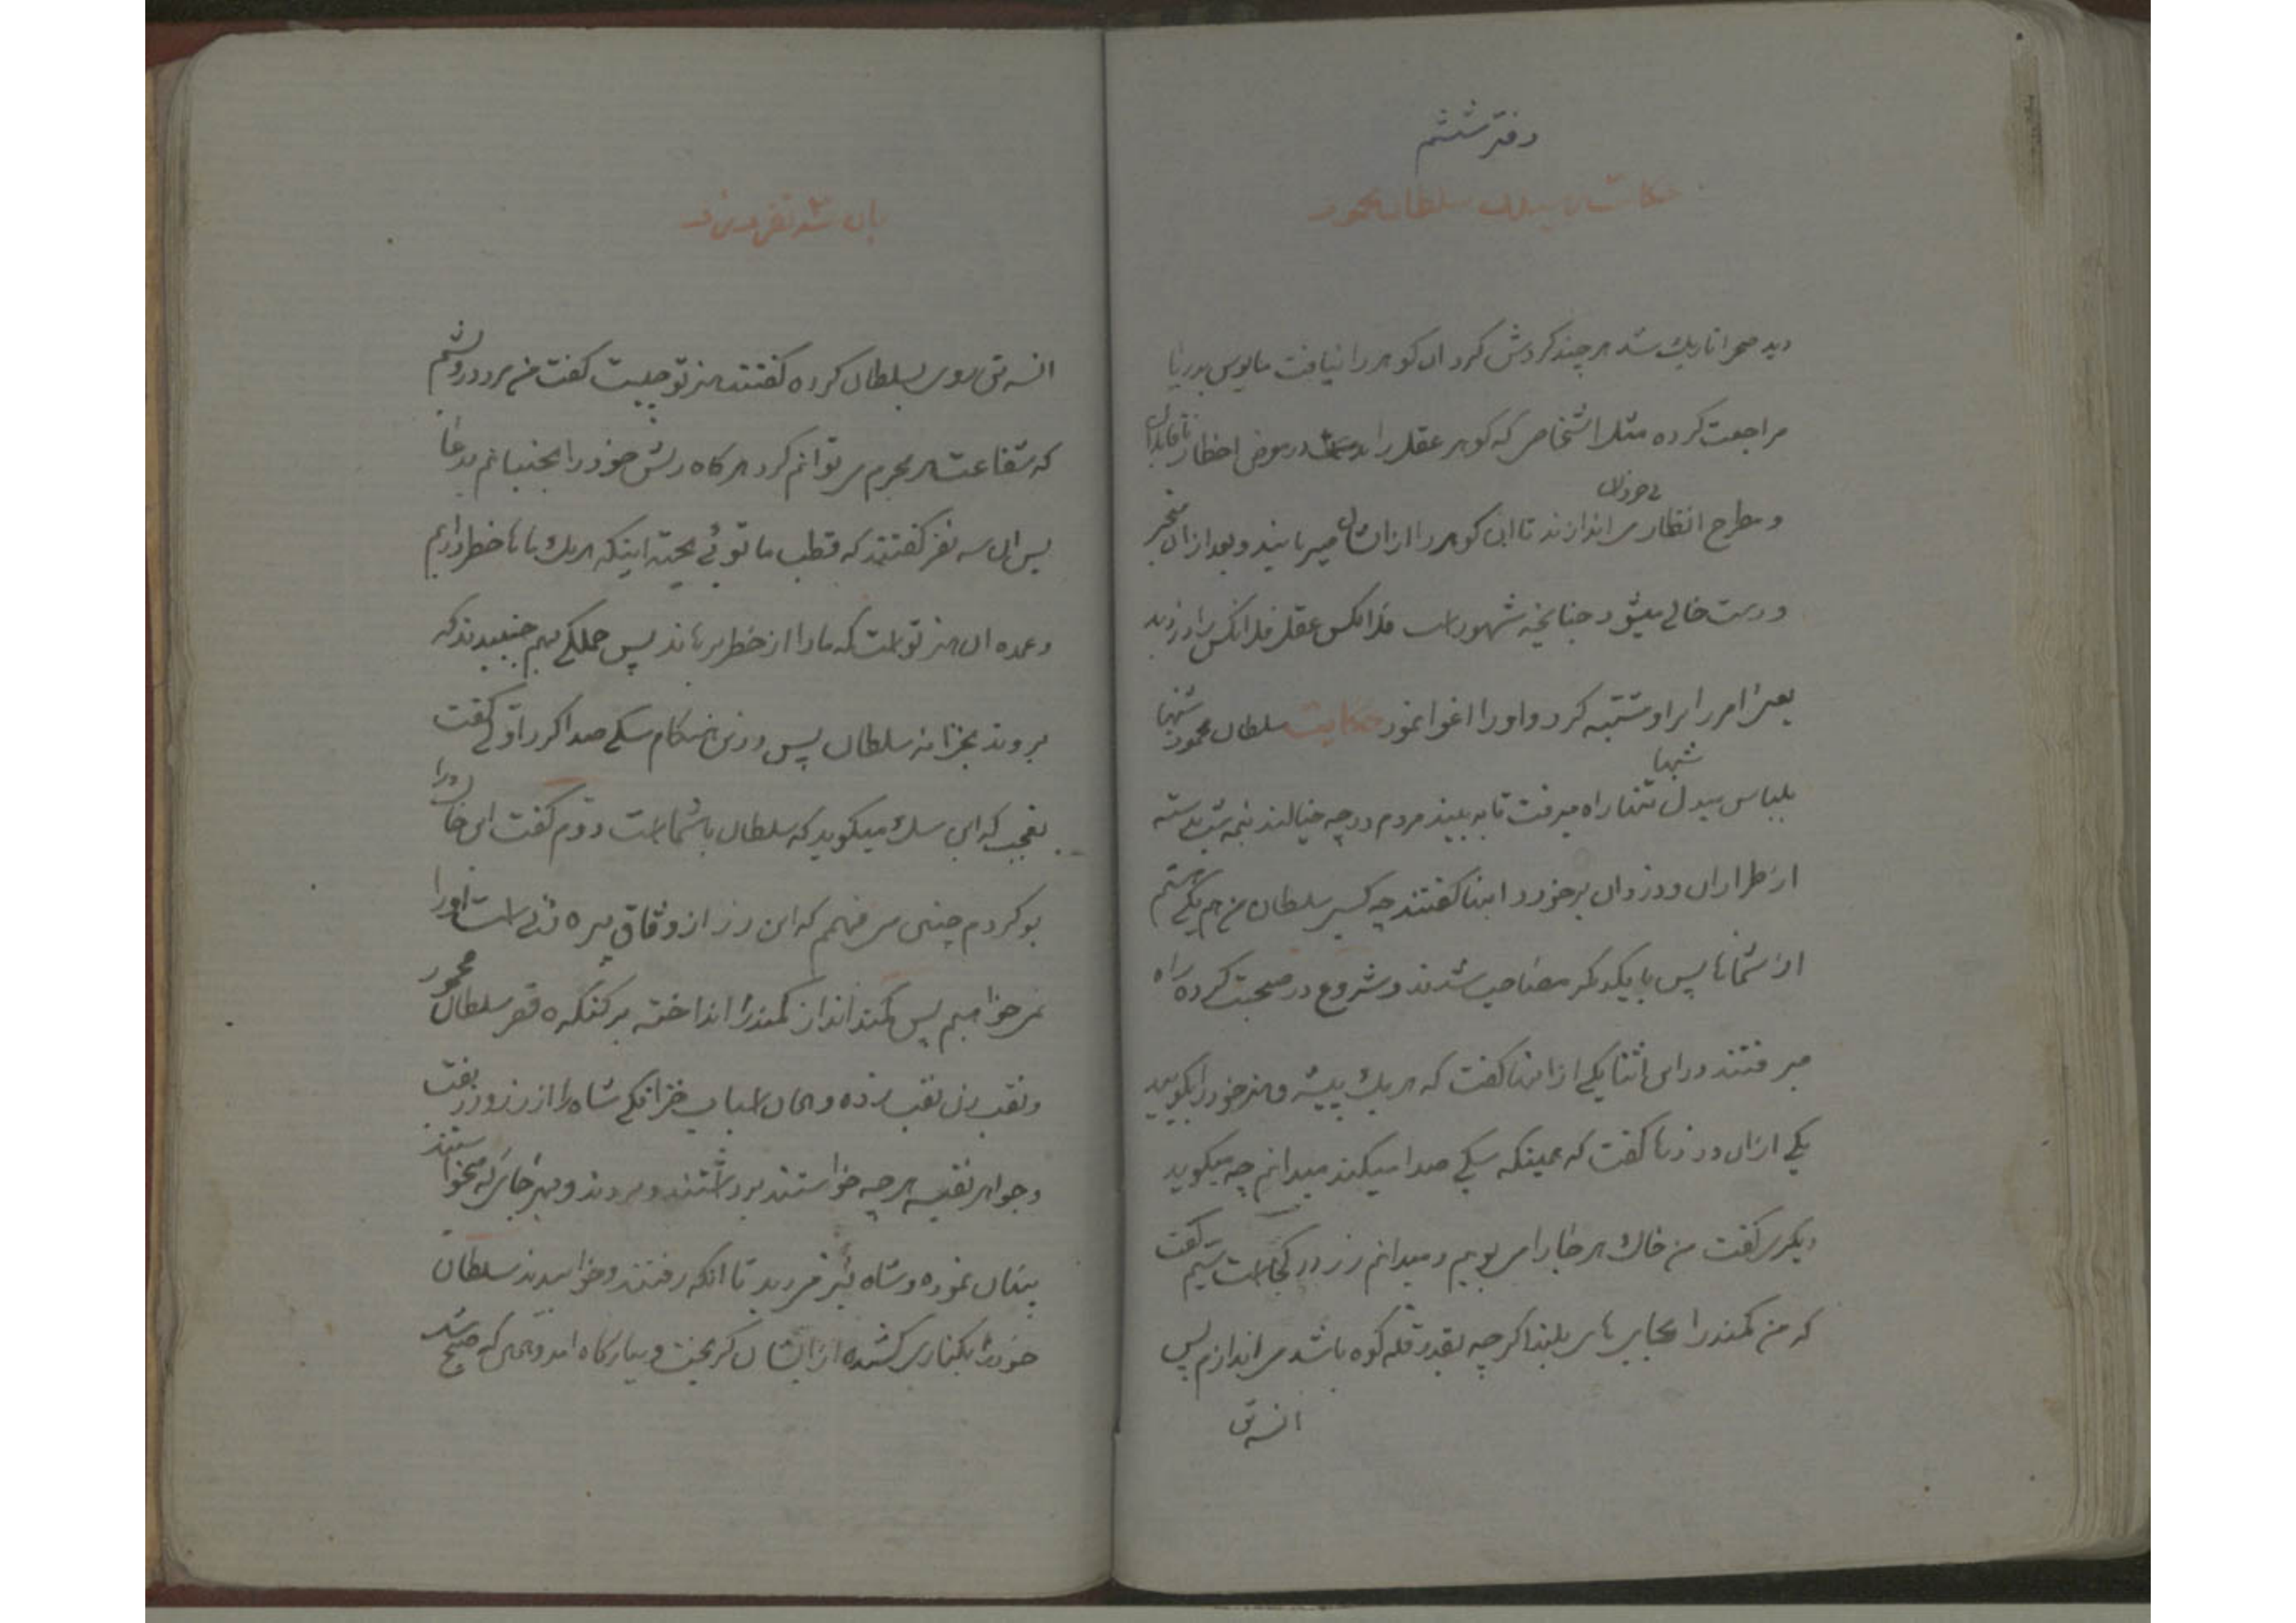 دفتر ششم
حکایت سلطان محمود
دید صحرا تاریک شد هر چند کردش کرد ان کوهر را نیافت مایوس بدریا
مراجعت کرده مثل اشخاصی که کوهر عقل را در معرض اخطار ناقابلان
بی خردان
و مطرح انظار می اندازند تا این کوهر را از ایشان میربایند و بعد از ان متحیر
و دست خالی میشود چنانچه مشهور است فلانکس عقل فلانکس را دزدید
یعنی امر را بر او مشتبه کرد و او را اغوا نمود حکایت سلطان محمود شبها
شبها
بلباس مبدل تنها راه میرفت تا به بیند مردم در چه خیالند نیمه شب بدسته
از طراران و دزدان برخورد اینها کفتند چه کسی سلطان من هم یکی هستم
از شماها پس با یکدیکر مصاحب شدند و شروع در صحبت کرده راه
میرفتند در این اثنا یکی از اینها کفت که هر یک پیشه و هنر خود را بکویید
یکی از ان دزدها کفت که همینکه سکی صدا میکند میدانم چه میکوید
دیکری کفت من خاک هر جا را می بویم و میدانم زر در کجاست سیم کفت
که من کمند را بجایی های بلند اکرچه بقدر قله کوه باشد می اندازم پس
انسه تن
بان سه نفر دزد
انسه تن روی بسلطان کرده کفتند هنر تو چیست کفت من مرد درویشم
که شفاعت هر مجرم می توانم کرد هر کاه ریش خود را بجنبانم بدعا
پس ان سه نفر کفتند که قطب ما توئی بجهته اینکه هر یک ماها خطر داریم
و عمده ان هنر تو است که ما را از خطر برهاند پس جملکی بهم جنبیدند که
بروند بخزانه سلطان پس در این هنکام سکی صدا کرد اولی کفت
بعجب که این سک میکوید که سلطان با شما است دوم کفت این خاک را
بو کردم چنین می فهمم که این زر از وثاق بیره زنی است او را
نمی خواهیم پس کمند انداز کمند را انداخته بر کنکره قصر سلطان محمود
و نقب زن نقب زده و همان اسباب خزانکی شاه را از زر و زربفت
و جواهر نفیسه هر چه خواستند برداشتند و بردند و بهر جائی که میخواستند
پنهان نموده و شاه نیز می دید تا انکه رفتند و خوابیدند سلطان
خود را بکناری کشیده از ایشان کریخت و ببارکاه امد و همین که صبح شد